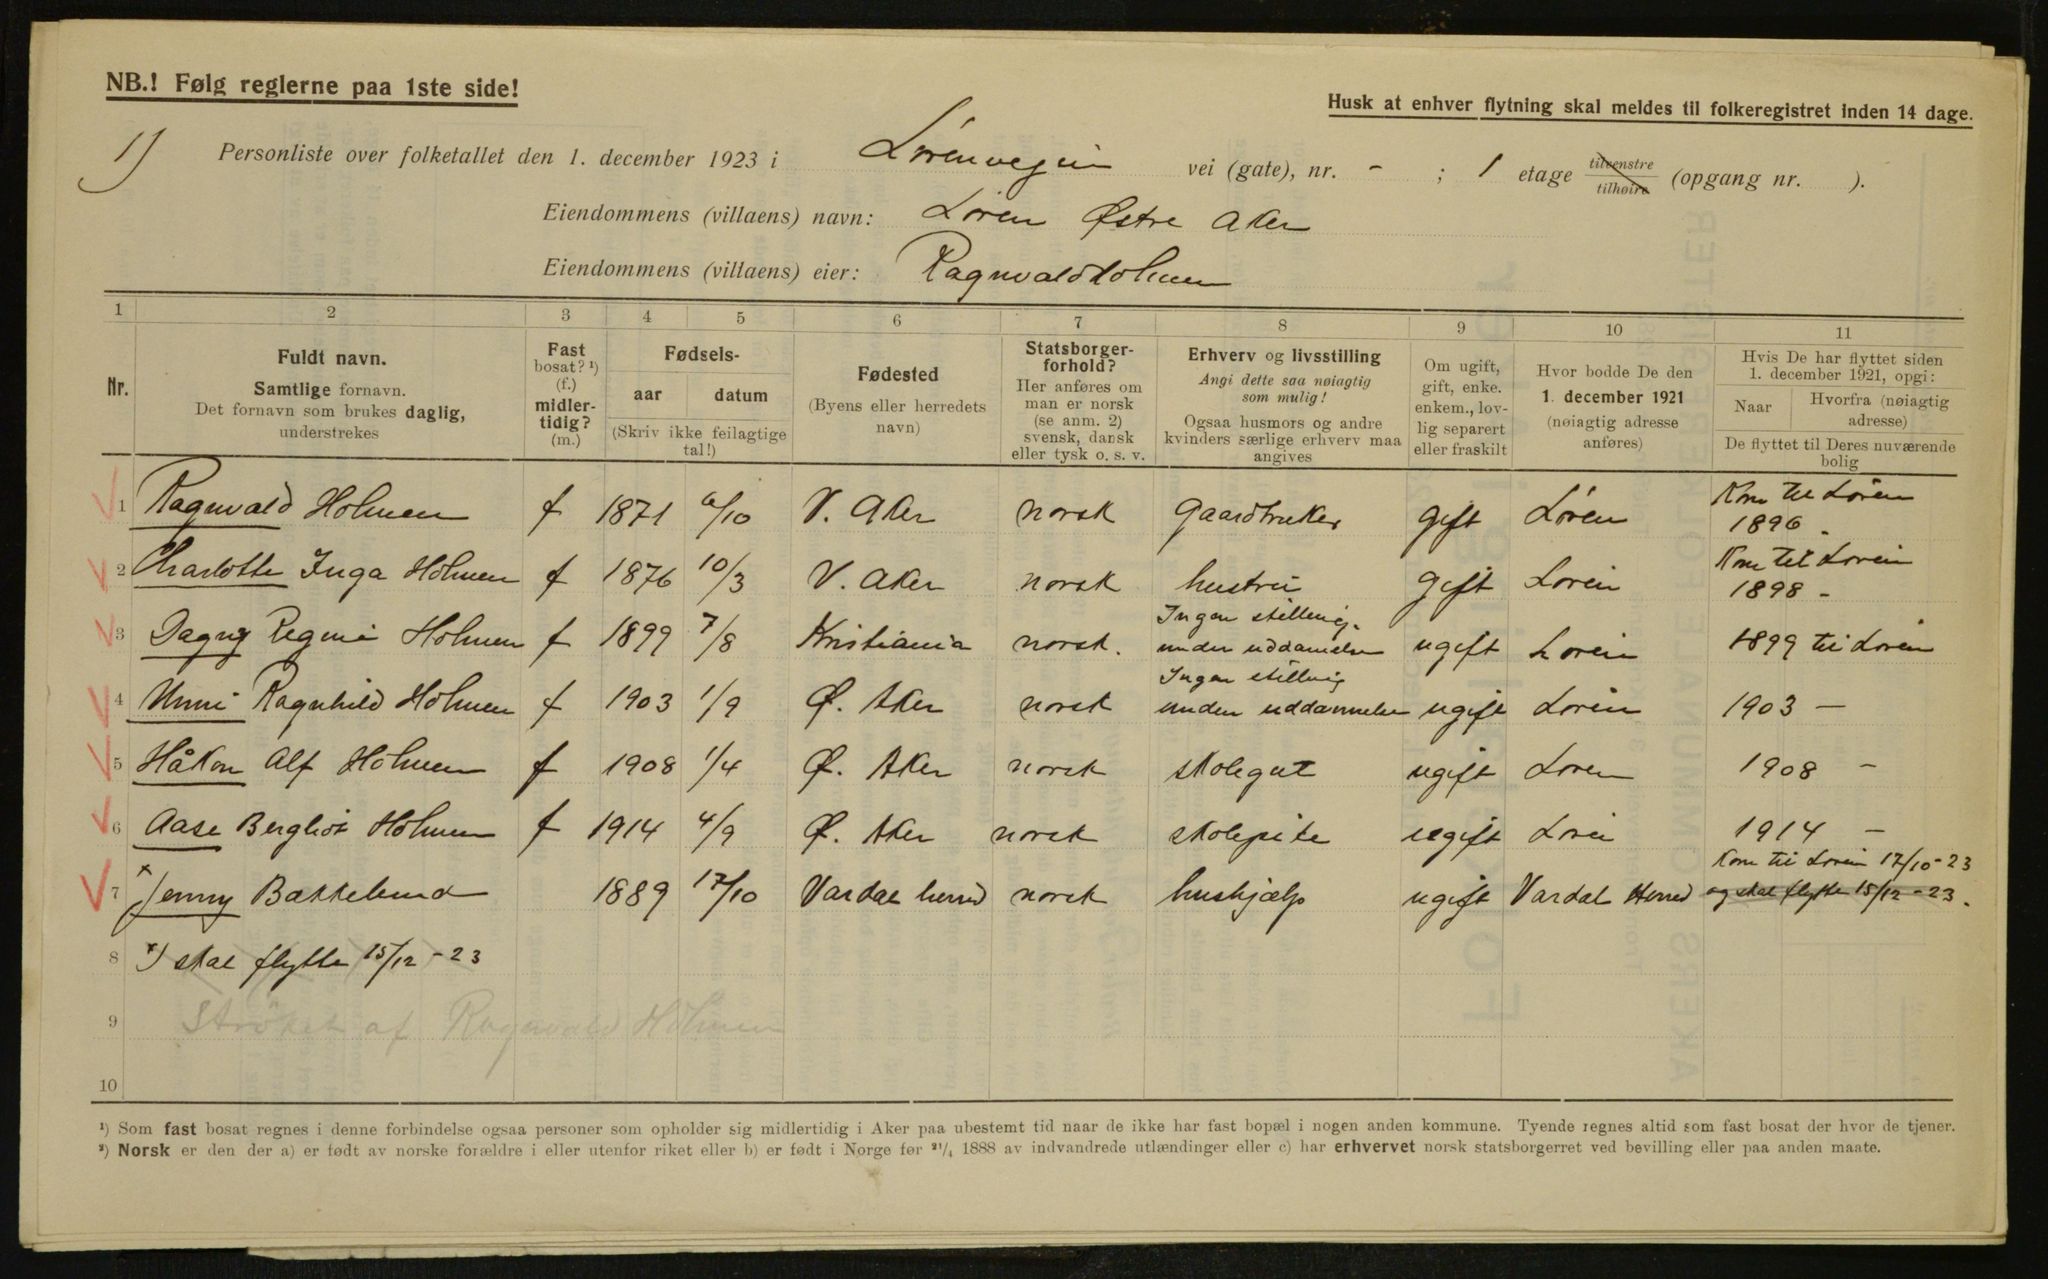 NB.! Følg reglerne paa 1ste side!
Husk at enhver flytning skal meldes til folkeregistret inden 14 dage.
1) Personliste over folketallet den 1. december 1923 i Lørenvegin vei (gate), nr. - ; 1 etage tilvenstre tilhøire (opgang nr. ).
Eiendommens (villaens) navn: Løren Østre Aker
Eiendommens (villaens) eier: Ragnvald Holmen
1 2 3 4 5 6 7 8 9 10 11
Nr.
Fuldt navn.
Samtlige fornavn.
Det fornavn som brukes daglig,
understrekes
Fast
bosat? ¹)
(f.)
midler-
tidig?
(m.)
Fødsels-
aar datum
(Skriv ikke feilagtige
tal!)
Fødested
(Byens eller herredets
navn)
Statsborger-
forhold?
Her anføres om
man er norsk
(se anm. 2)
svensk, dansk
eller tysk o. s. v.
Erhverv og livsstilling
Angi dette saa nøiagtig
som mulig!
Ogsaa husmors og andre
kvinders særlige erhverv maa
angives
Om ugift,
gift, enke.
enkem., lov-
lig separert
eller fraskilt
Hvor bodde De den
1. december 1921
(nøiagtig adresse
anføres)
Hvis De har flyttet siden
1. december 1921, opgi:
Naar Hvorfra (nøiagtig
adresse)
De flyttet til Deres nuværende
bolig
1 Ragnvald Holmen f 1871 6/10 V. Aker norsk gaardbruker gift Løren Kom til Løren
1896.
2 Charlotte Inga Holmen f 1876 10/3 V. Aker norsk hustru gift Løren Kom til Løren
1898 -
3 Dagny Regine Holmen f 1899 7/8 Kristiania norsk. Ingen stilling.
under uddannelse ugift Løren 1899 til Løren
4 Unni Ragnhild Holmen f 1903 1/9 Ø. Aker norsk Ingen stilling
under uddannelse ugift Løren 1903 —
5 Håkon Alf Holmen f 1908 1/4 Ø. Aker norsk skolegut ugift Løren 1908 -
6 Aase Bergliot Holmen f 1914 4/9 Ø. Aker norsk skolepike ugift Løren 1914 —
7 x Jenny Bakkelund 1889 17/10 Vardal herred norsk hushjælp ugift Vardal Herred Kom til Løren 17/10-23
og skal flytte 15/12-23.
8 x) skal flytte 15/12-23
9 Strøket af Ragnvald Holmen
10
¹) Som fast bosat regnes i denne forbindelse ogsaa personer som opholder sig midlertidig i Aker paa ubestemt tid naar de ikke har fast bopæl i nogen anden kommune. Tyende regnes altid som fast bosat der hvor de tjener.
²) Norsk er den der a) er født av norske forældre i eller utenfor riket eller b) er født i Norge før ²¹/₄ 1888 av indvandrede utlændinger eller c) har erhvervet norsk statsborgerret ved bevilling eller paa anden maate.